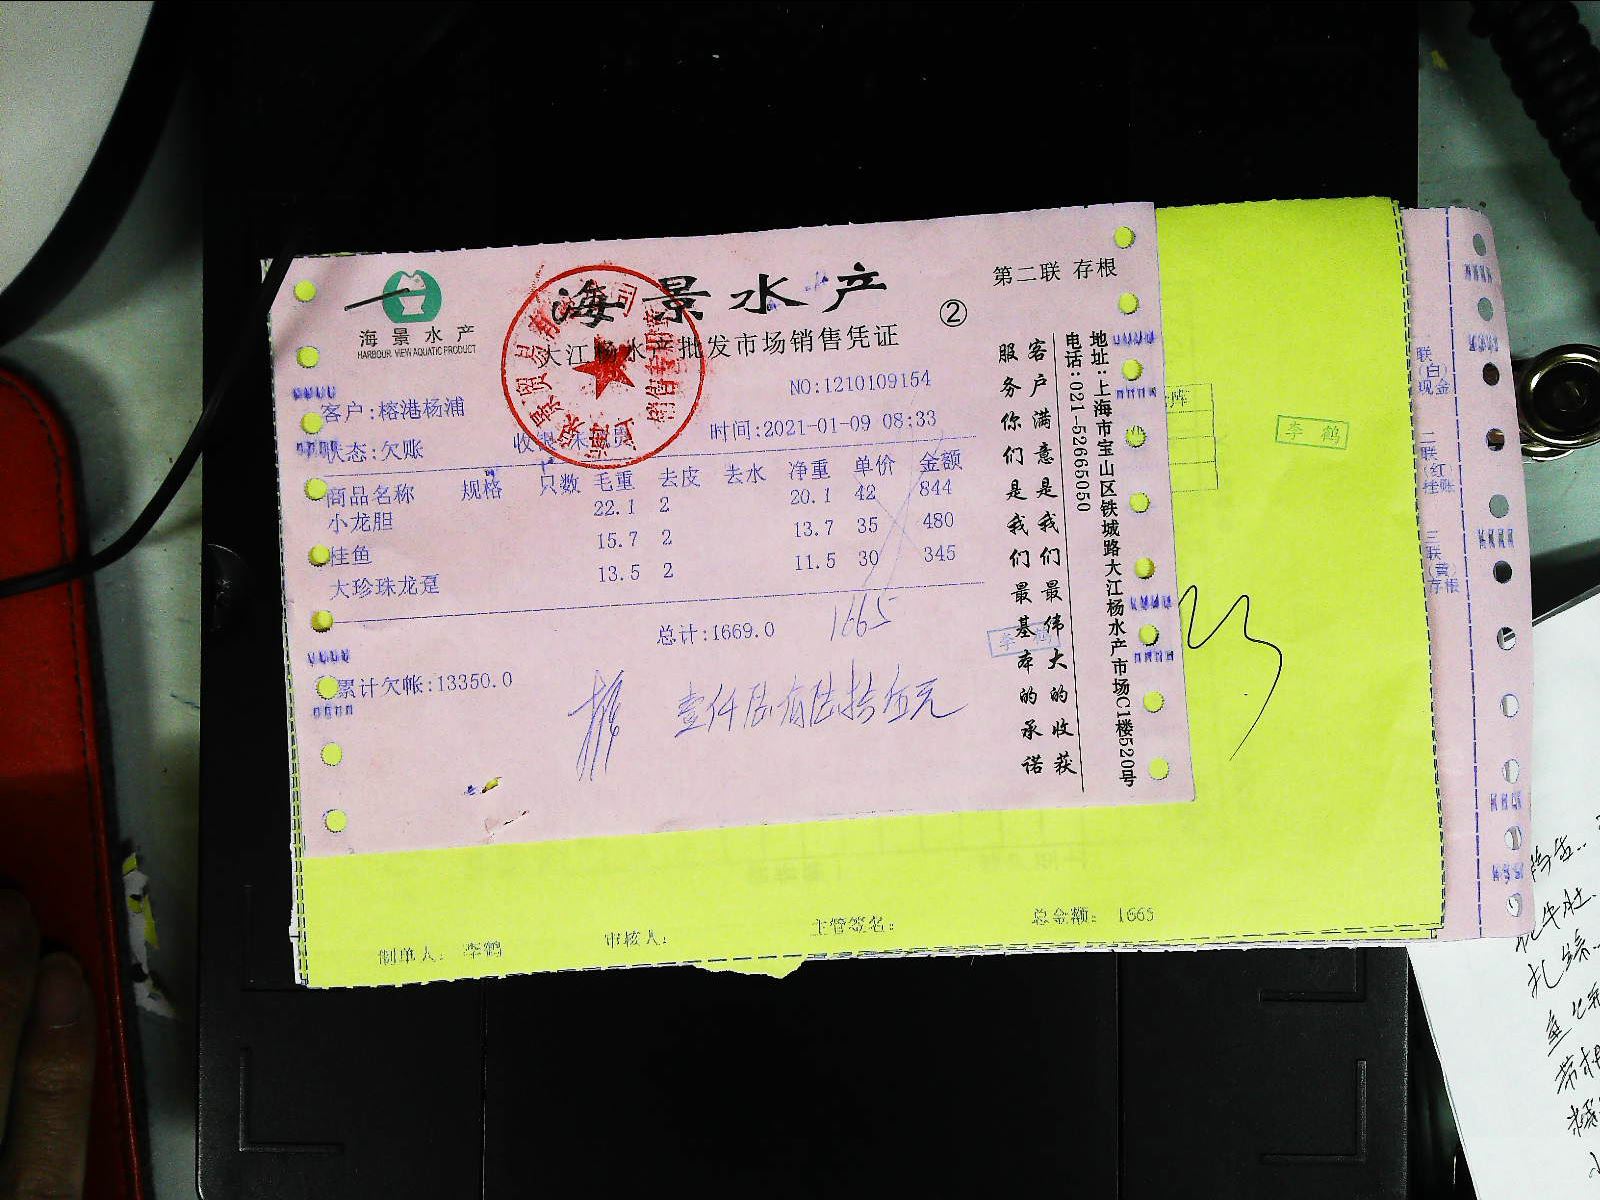 海景水产
HARBOUR VIEW AQUATIC PRODUCT
海景水产
②
第二联 存根
大江杨水产批发市场销售凭证
NO:1210109154
客户:榕港杨浦
时间:2021-01-09 08:33
状态:欠账
商品名称 规格 只数 毛重 去皮 去水 净重 单价 金额
小龙胆 22.1 2 20.1 42 844
桂鱼 15.7 2 13.7 35 480
大珍珠龙趸 13.5 2 11.5 30 345
总计:1669.0 1665
累计欠帐:13350.0
壹仟陆佰陆拾伍元
客户满意是我们最伟大的收获
服务你们是我们最基本的承诺
地址:上海市宝山区铁城路大江杨水产市场C1楼520号
电话:021-52665050
销售专用章
李鹤
李鹤
联(白)现金
二联(红)挂账
三联(黄)存根
制单人: 李鹤 审核人: 主管签名: 总金额: 1665